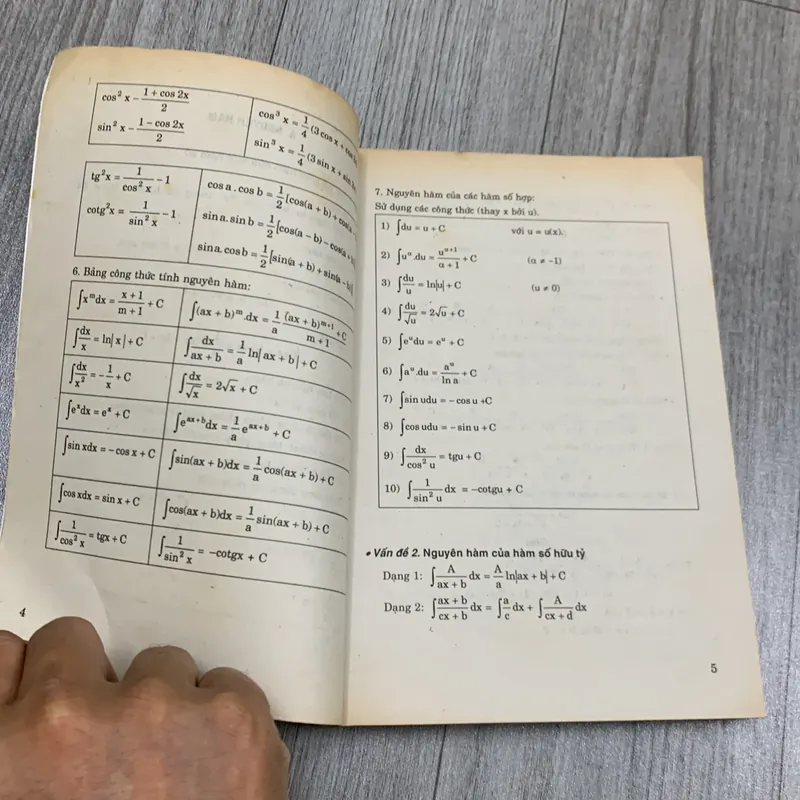 cos² x - (1 + cos 2x)/2
sin² x - (1 - cos 2x)/2
cos³ x = 1/4 (3cos x + cos
sin³ x = 1/4 (3sin x + sin
tg²x = 1/(cos² x) - 1
cotg²x = 1/(sin² x) - 1
cosa.cosb = 1/2[cos(a + b) + cos(a
sina.sinb = 1/2[cos(a - b) - cos(a + b)
sina.cosb = 1/2[sin(a + b) + sin(a - b)]
6. Bảng công thức tính nguyên hàm:
∫xᵐdx = (x + 1)/(m + 1) + C
∫(ax + b)ᵐ.dx = 1/a (ax + b)ᵐ⁺¹/(m + 1) + C
∫dx/x = ln|x| + C
∫dx/(ax + b) = 1/a ln|ax + b| + C
∫dx/x² = -1/x + C
∫dx/√x = 2√x + C
∫eˣdx = eˣ + C
∫eᵃˣ⁺ᵇdx = 1/a eᵃˣ⁺ᵇ + C
∫sin xdx = - cos x + C
∫sin(ax + b)dx = 1/a cos(ax + b) + C
∫cosxdx = sinx + C
∫cos(ax + b)dx = 1/a sin(ax + b) + C
∫1/(cos² x) = tgx + C
∫1/(sin² x) = -cotgx + C
4
7. Nguyên hàm của các hàm số hợp:
Sử dụng các công thức (thay x bởi u).
1) ∫du = u + C với u = u(x).
2) ∫uᵅ.du = uᵅ⁺¹/(α + 1) + C (α ≠ -1)
3) ∫du/u = ln|u| + C (u ≠ 0)
4) ∫du/√u = 2√u + C
5) ∫eᵘdu = eᵘ + C
6) ∫aᵘ.du = aᵘ/(ln a) + C
7) ∫sin udu = - cos u +C
8) ∫cosudu = - sin u + C
9) ∫dx/(cos² u) = tgu + C
10) ∫1/(sin² u) dx = -cotgu + C
• Vấn đề 2. Nguyên hàm của hàm số hữu tỷ
Dạng 1: ∫A/(ax + b) dx = A/a ln|ax + b| + C
Dạng 2: ∫(ax + b)/(cx + b) dx = ∫a/c dx + ∫A/(cx + d) dx
5